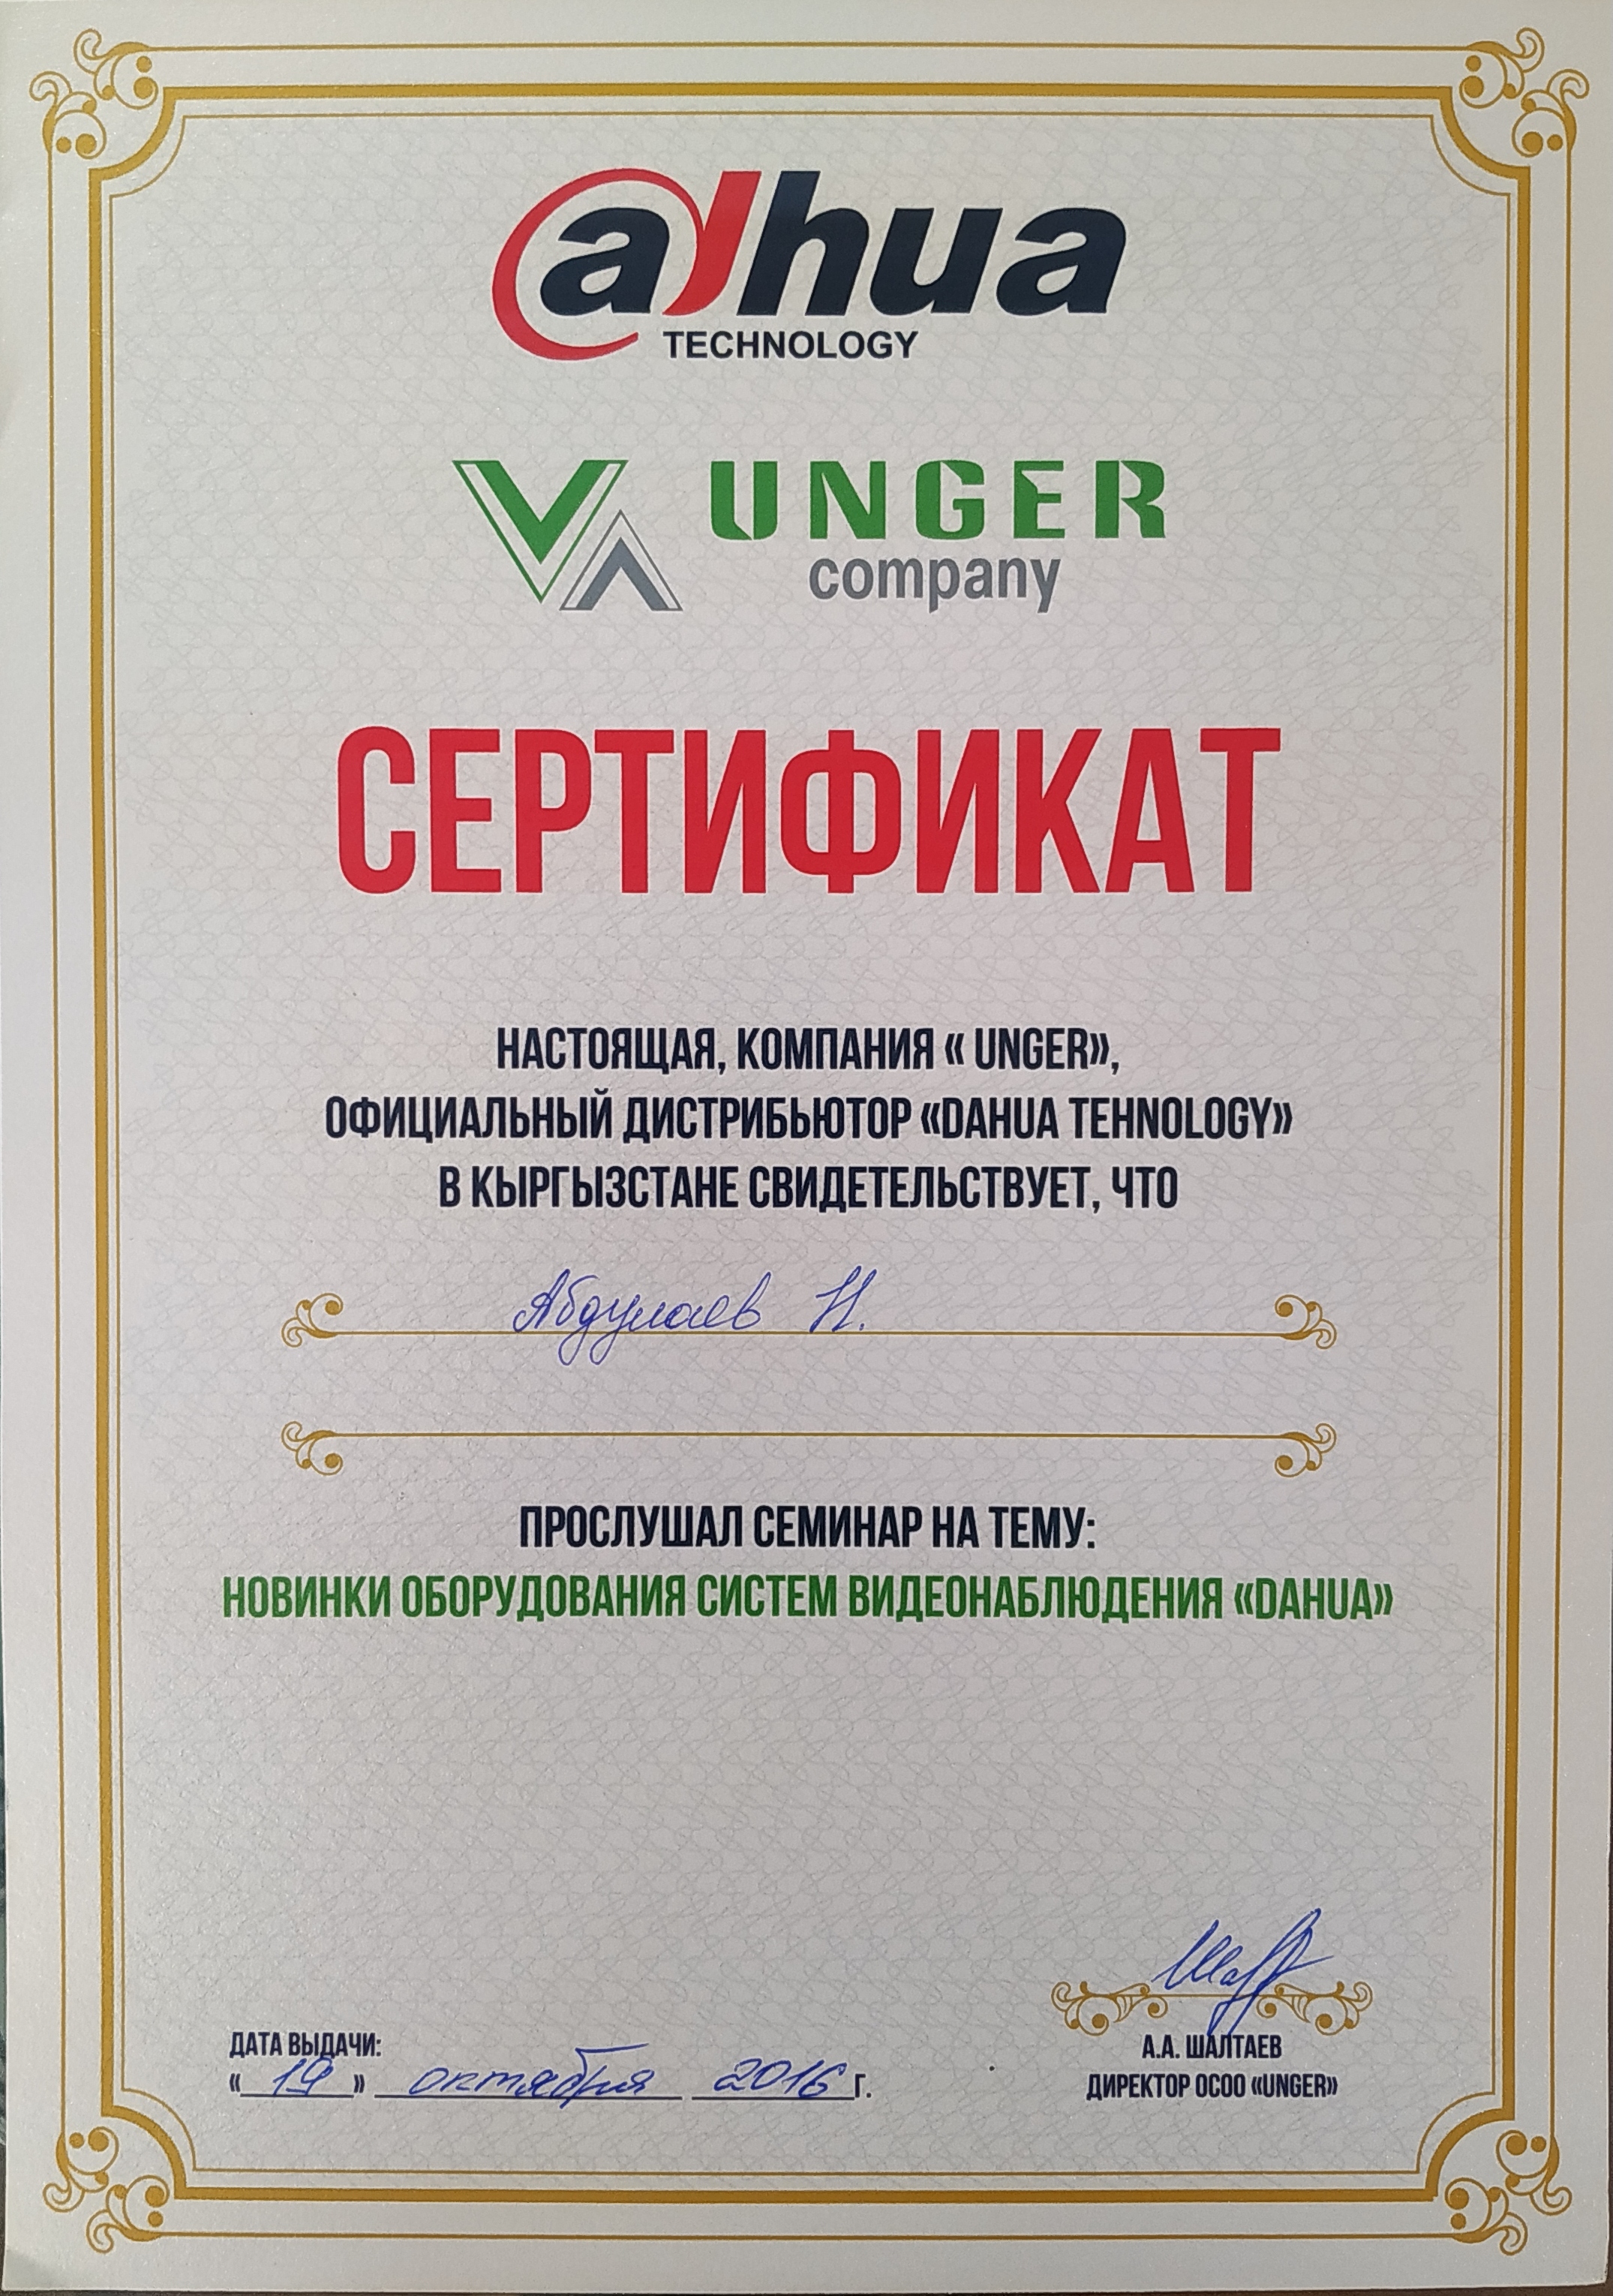 alhua
TECHNOLOGY
UNGER
company
СЕРТИФИКАТ
НАСТОЯЩАЯ, КОМПАНИЯ « UNGER»,
ОФИЦИАЛЬНЫЙ ДИСТРИБЬЮТОР «DAHUA TEHNOLOGY»
В КЫРГЫЗСТАНЕ СВИДЕТЕЛЬСТВУЕТ, ЧТО
Абдулаев Н.
ПРОСЛУШАЛ СЕМИНАР НА ТЕМУ:
НОВИНКИ ОБОРУДОВАНИЯ СИСТЕМ ВИДЕОНАБЛЮДЕНИЯ «DAHUA»
ДАТА ВЫДАЧИ:
« 19 » октября 2016 г.
А.А. ШАЛТАЕВ
ДИРЕКТОР ОСОО «UNGER»